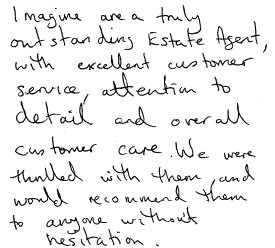 Imagine are a truly
outstanding Estate Agent,
with excellent customer
service, attention to
detail and overall
customer care. We were
thrilled with them, and
would recommend them
to anyone without
hesitation.